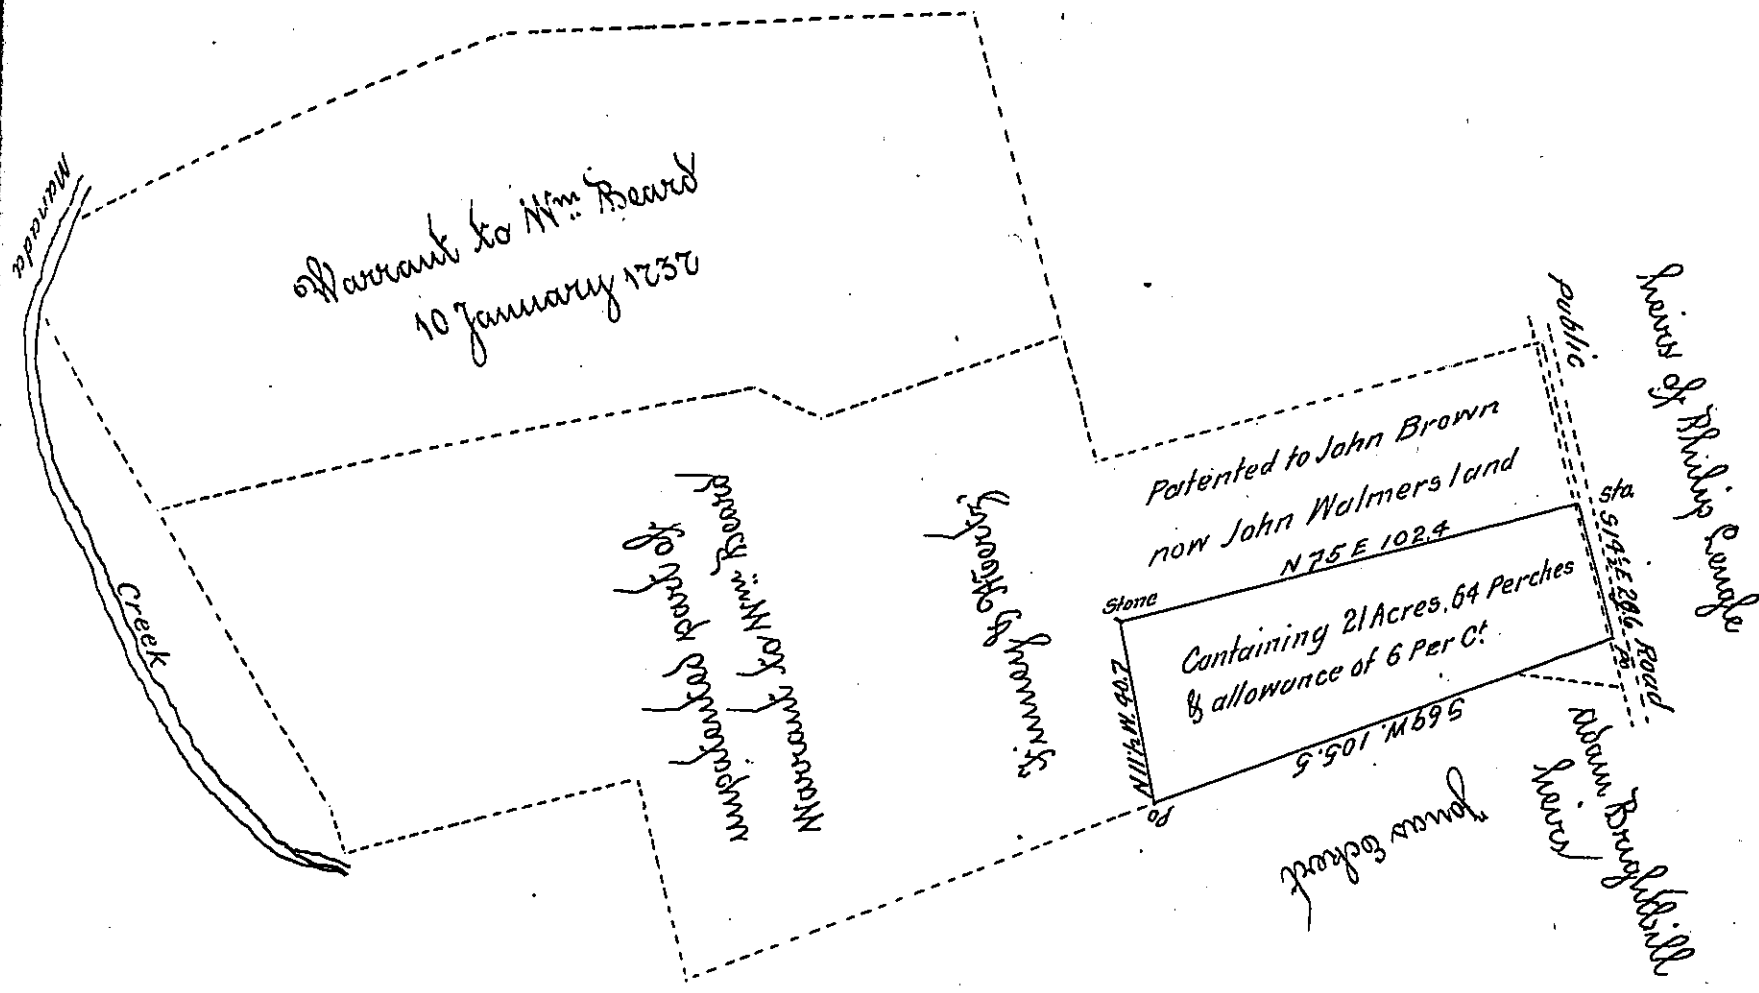 Manada
Creek
Warrant to Wm Beard
10 January 1737
unpatented part of
Warrant to Wm Beard
Patented to John Brown
now John Walmers land
N 75 E 102.4
Stone
Containing 21 Acres, 64 Perches
& allowance of 6 Per Ct
N 11½ W. 40.7
Po
S 69 W. 105.5
Public
Road
Sta.
S 14½ E 28.6
Po
heirs of Philip Lengle
Adam Brughtbill
heirs
Jonas Eckert